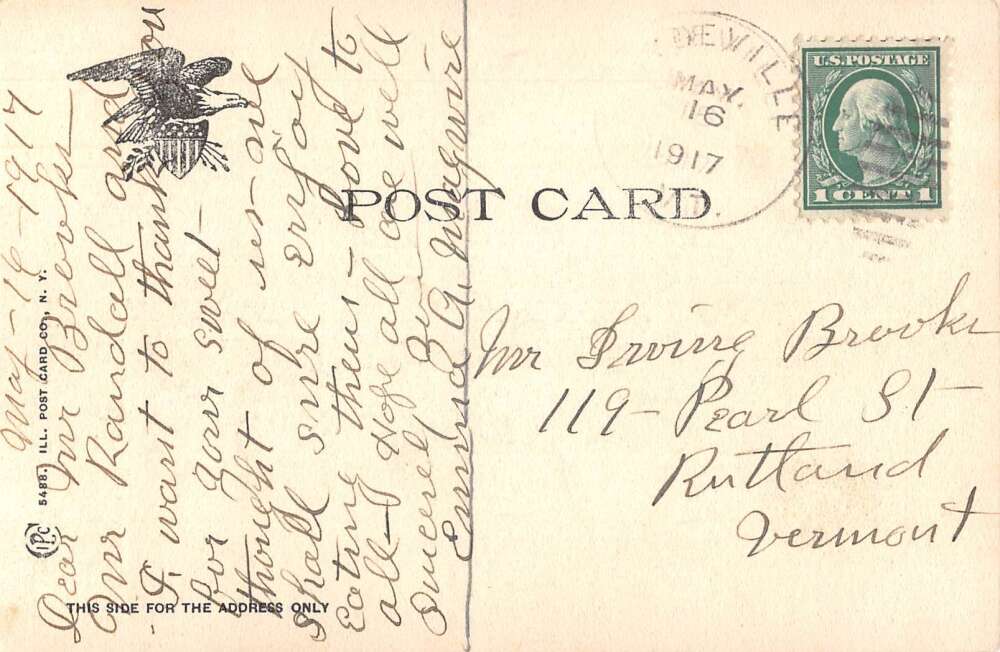 May-16-1917
Dear Mr Brooks-
Mr Randall and
I want to thank you
for your sweet
thought of us- one
shall sure enjoy
Eating them- love to
all- Hope all are well
Sincerely
Emma A. Maguire
5488. ILL. POST CARD CO., N. Y.
IPC
THIS SIDE FOR THE ADDRESS ONLY
POST CARD
DEWVILLE
MAY.
16
1917
VT.
U.S. POSTAGE
1 CENT 1
Mr Irving Brooks
119- Pearl St
Rutland
Vermont